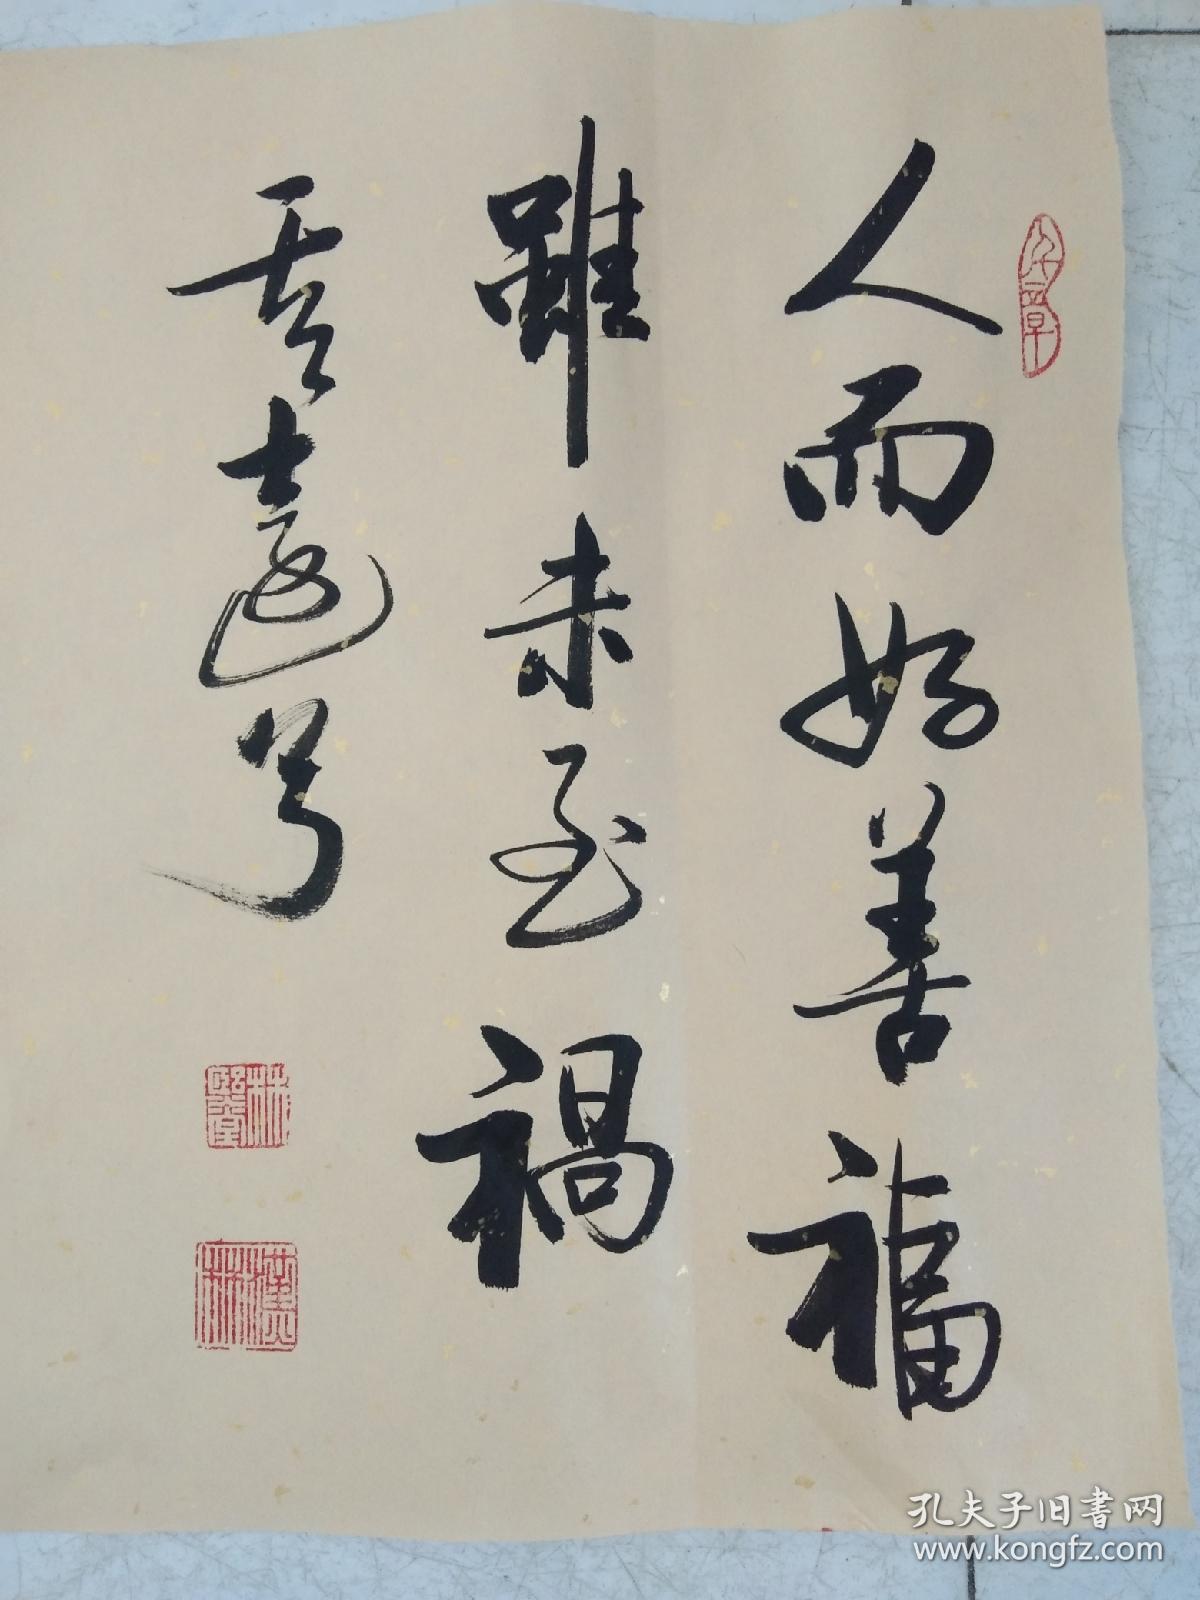 人而好善福
雖未至禍
其遠矣
林熙堂
孔夫子旧书网
www.kongfz.com